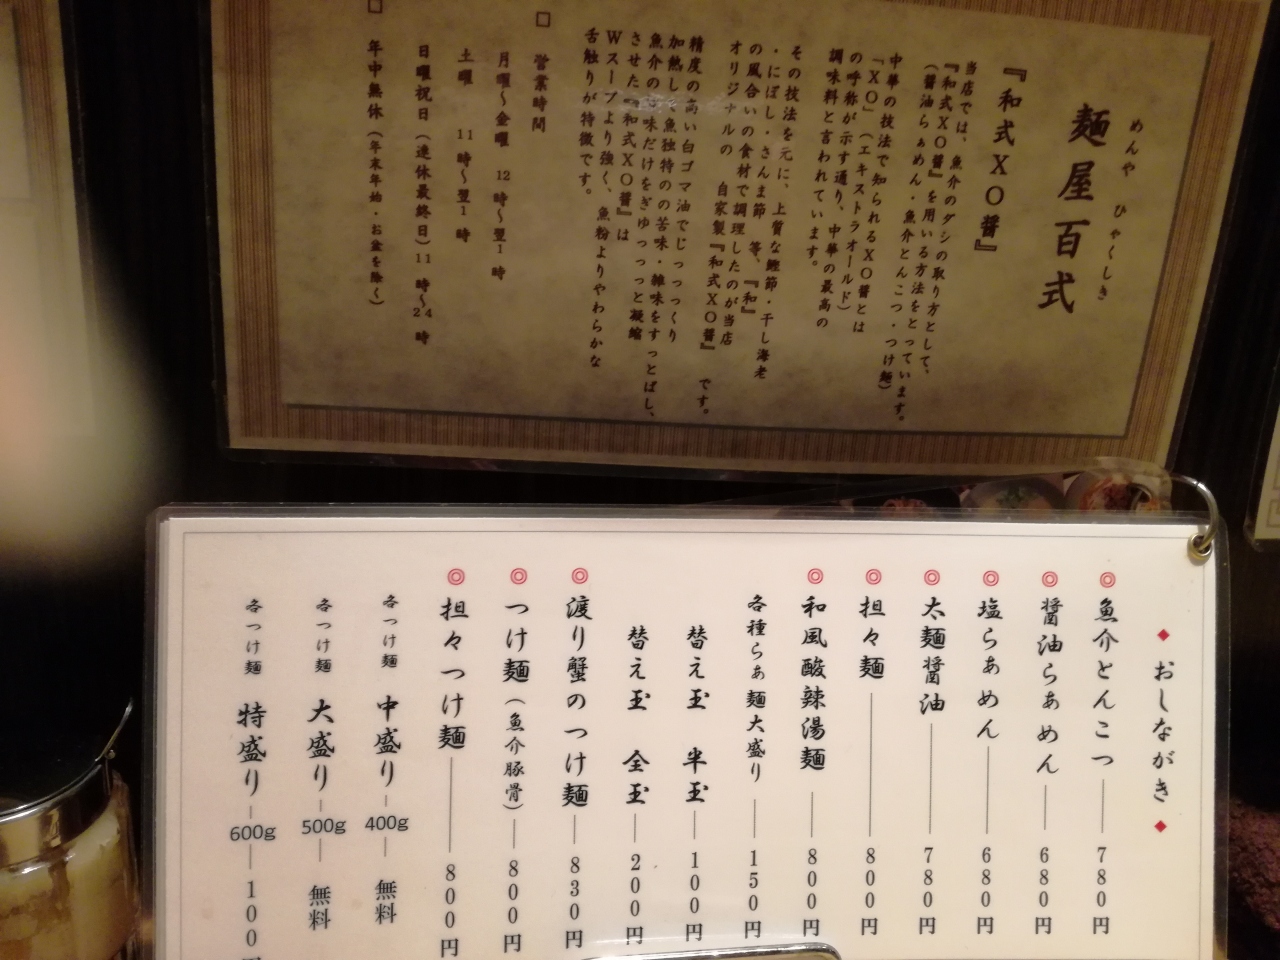 麺屋百式
めんや ひゃくしき
『和式XO醤』
当店では、魚介のダシの取り方として、
『和式XO醤』を用いる方法をとっています。
(醤油らぁめん・魚介とんこつ・つけ麺)
中華の技法で知られるXO醤とは
「XO」(エキストラオールド)
の呼称が示す通り、中華の最高の
調味料と言われています。
その技法を元に、上質な鰹節・干し海老
・にぼし・さんま節 等、『和』
の風合いの食材で調理したのが当店
オリジナルの 自家製『和式XO醤』です。
精度の高い白ゴマ油でじっっっくり
加熱して魚独特のの苦味・雑味をすっとばし、
魚介の旨味だけをぎゅっっっと凝縮
させた『和式XO醤』は
Wスープより強く、魚粉よりやわらかな
舌触りが特徴です。
□ 営業時間
月曜~金曜 12時~翌1時
土曜 11時~翌1時
日曜祝日(連休最終日)11時~24時
□ 年中無休(年末年始・お盆を除く)
◆ おしながき ◆
◎ 魚介とんこつ 780円
◎ 醤油らぁめん 680円
◎ 塩らぁめん 680円
◎ 太麺醤油 780円
◎ 担々麺 800円
◎ 和風酸辣湯麺 800円
各種らぁ麺大盛り 150円
替え玉 半玉 100円
替え玉 全玉 200円
◎ 渡り蟹のつけ麺 830円
◎ つけ麺(魚介豚骨) 800円
◎ 担々つけ麺 800円
各つけ麺 中盛り 400g 無料
各つけ麺 大盛り 500g 無料
各つけ麺 特盛り 600g 100円